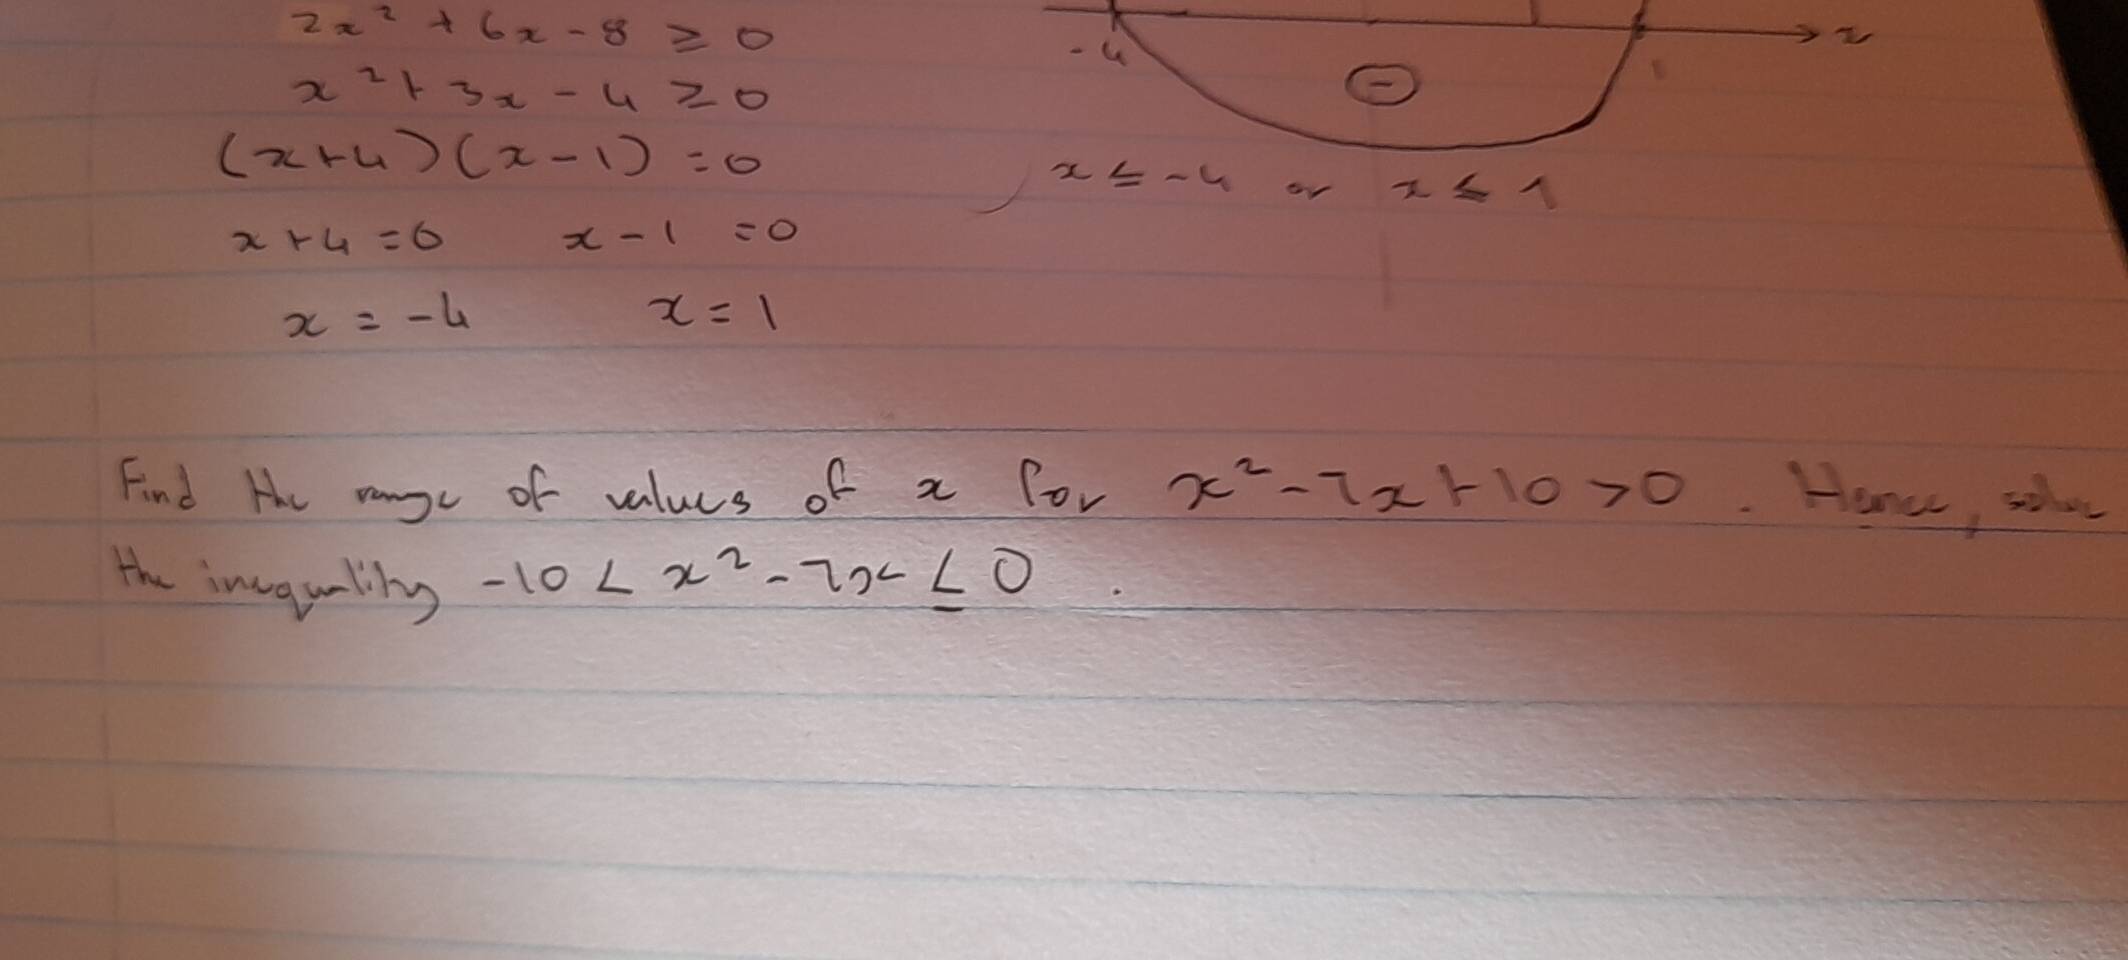 2x² + 6x - 8 ≥ 0
x² + 3x - 4 ≥ 0
(x+4)(x-1) = 0
x+4 = 0 x-1 = 0
x = -4 x = 1
x
-4 1
⊖
x ≤ -4 or x ≤ 1
Find the range of values of x for x² - 7x + 10 > 0 . Hence, solve
the inequality -10 < x² - 7x ≤ 0 .